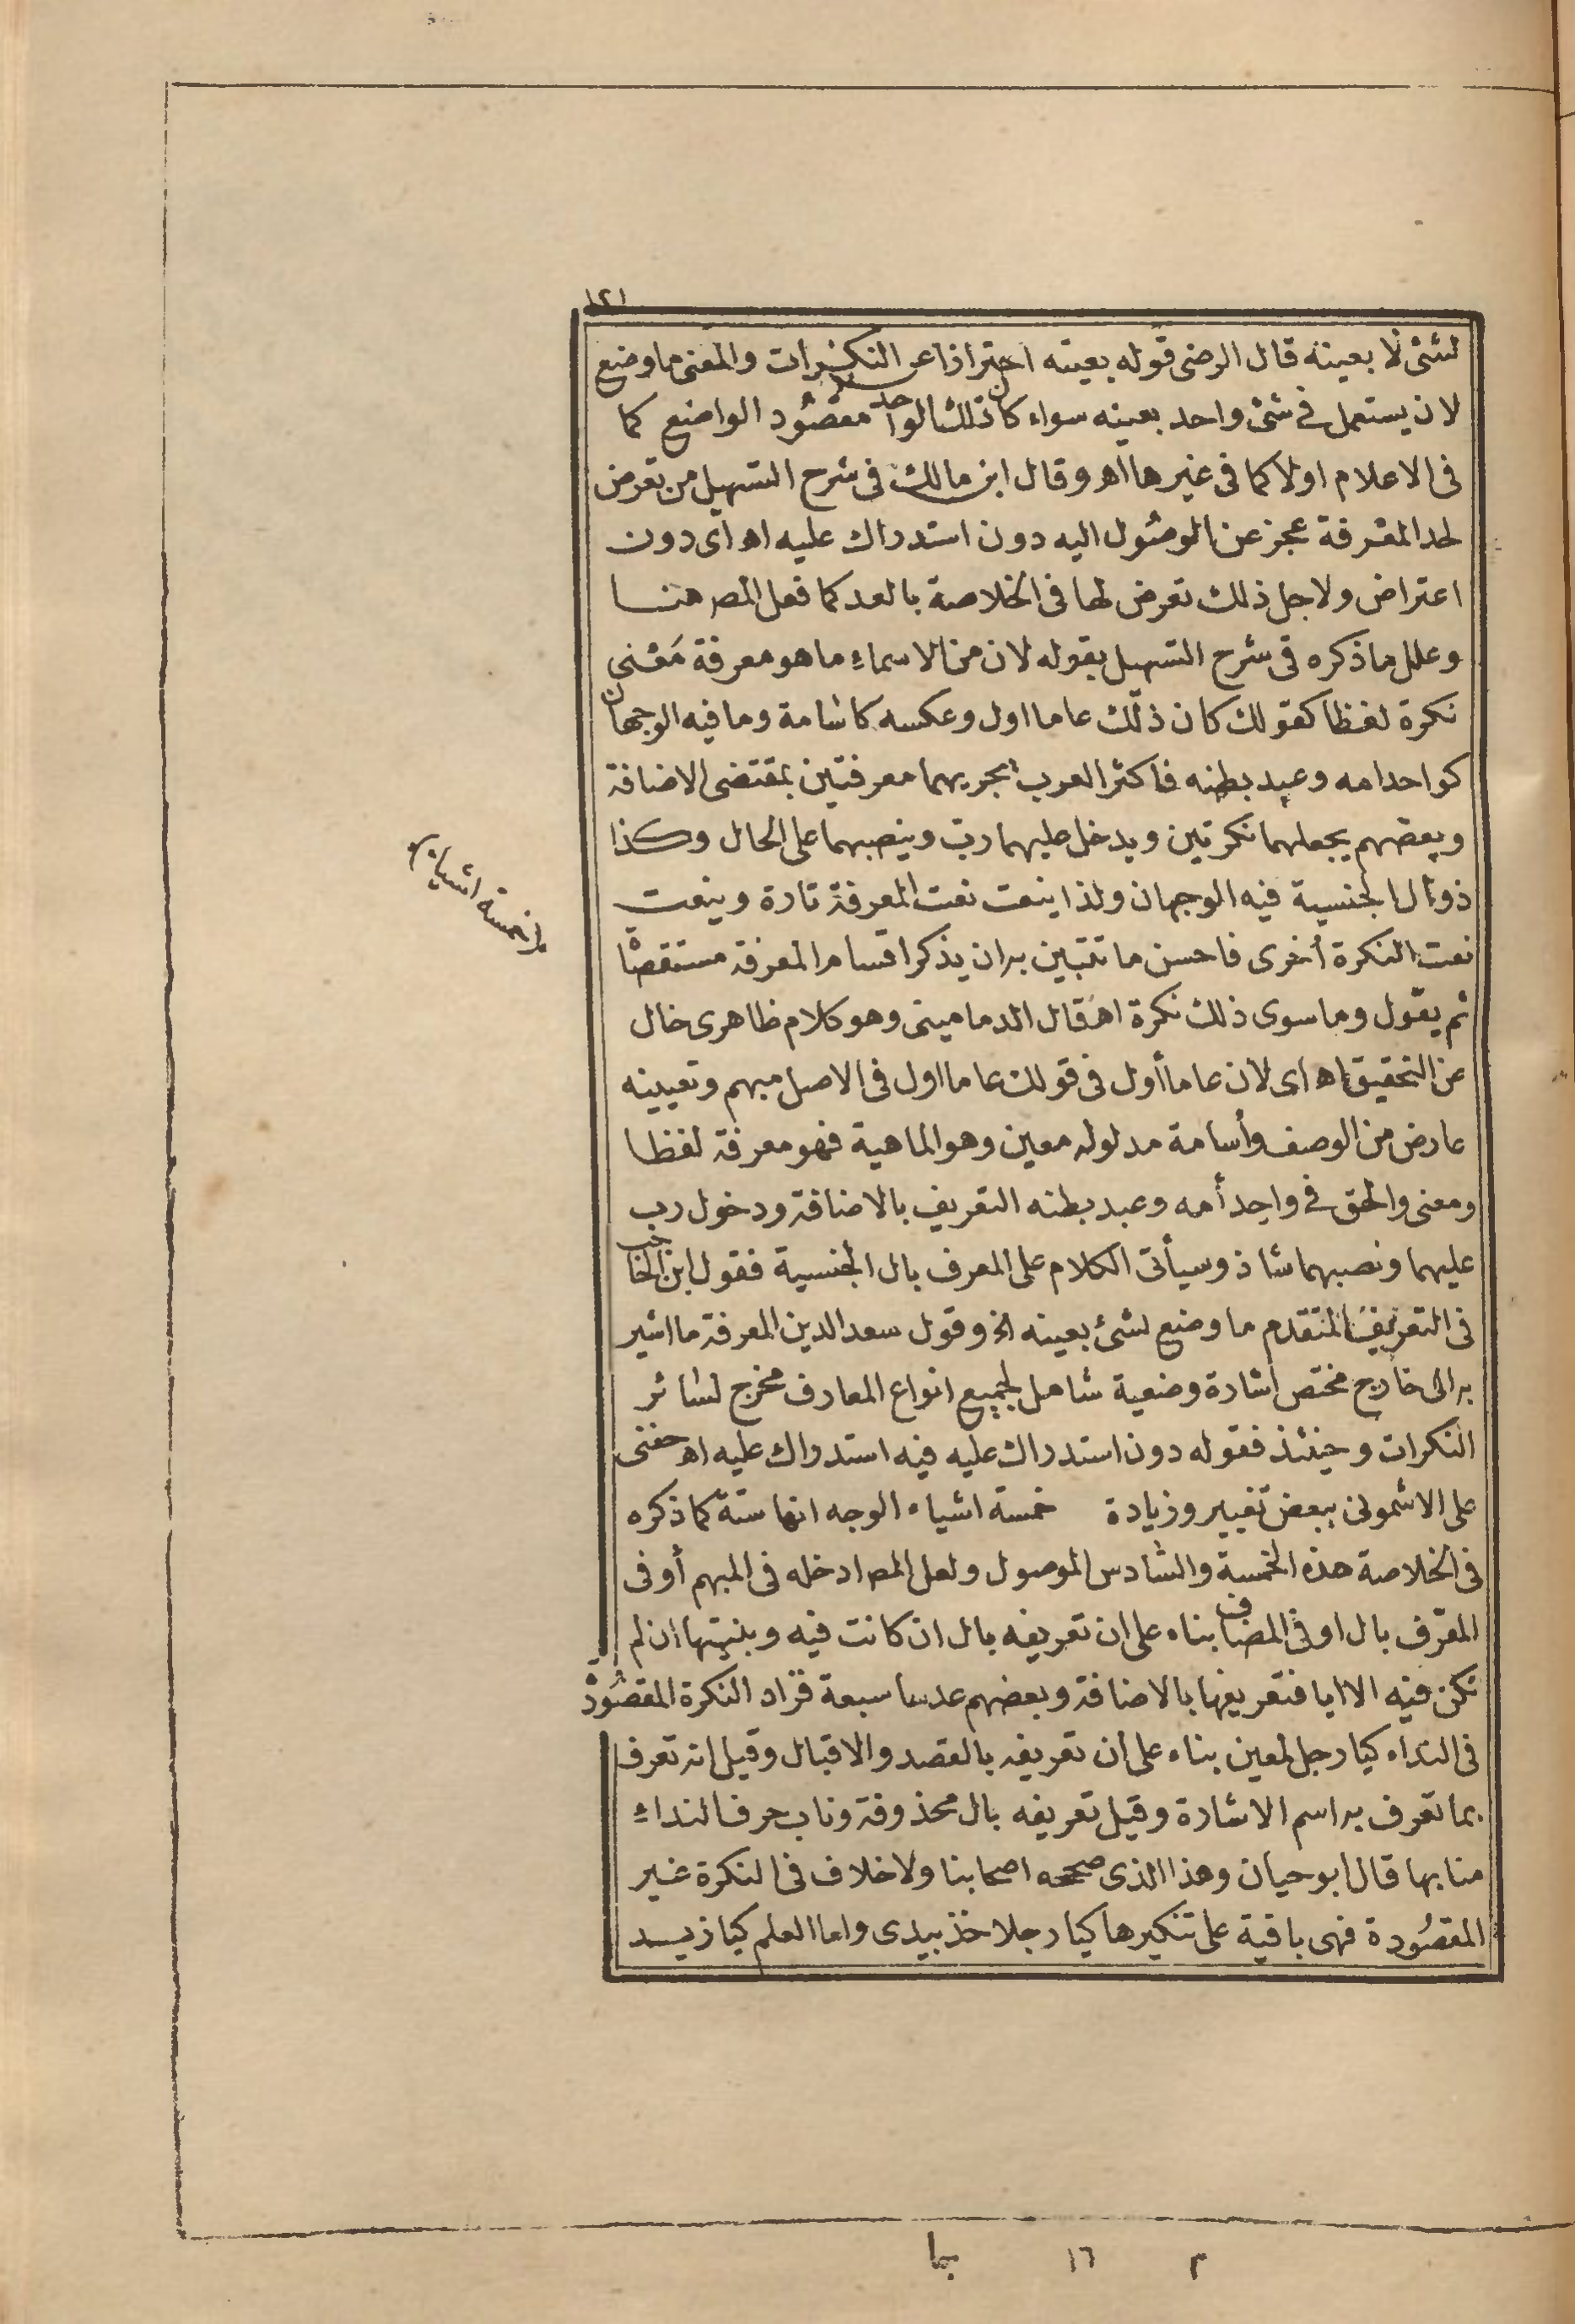 ١٢١
لشئ لا بعينه قال الرضى قوله بعينه احترازا عن النكرات والمعنى ما وضع
لان يستعمل فى شئ واحد بعينه سواء كان ذلك الواحد مقصود الواضع كما
فى الاعلام اولا كما فى غيرها اهـ وقال ابن مالك فى شرح التسهيل من تعرض
لحد المعرفة عجز عن الوصول اليه دون استدراك عليه اهـ اى دون
اعتراض ولاجل ذلك تعرض لها فى الخلاصة بالعد كما فعل المصـ هنـــا
وعلل ما ذكره فى شرح التسهيل بقوله لان من الاسماء ما هو معرفة مَعْنى
نكرة لفظا كقولك كان ذلك عاما اول وعكسه كاسامة وما فيه الوجهان
كواحد امه وعبد بطنه فاكثر العرب يجريهما معرفتين بمقتضى الاضافة
وبعضهم يجعلهما نكرتين ويدخل عليهما رب وينصبهما على الحال وكذا
ذو ال الجنسية فيه الوجهان ولذا ينعت نعت المعرفة تارة وينعت
نعت النكرة أخرى فاحسن ما تتبين به ان يذكر اقسام المعرفة مستقصًا
ثم يقول وما سوى ذلك نكرة اهـ قال الدمامينى وهو كلام ظاهرى خال
عن التحقيق اهـ اى لان عاما أول فى قولك عاما اول فى الاصل مبهم وتعيينه
عارض من الوصف وأسامة مدلوله معين وهو الماهية فهو معرفة لفظا
ومعنى والحق فى واحد أمه وعبد بطنه التعريف بالاضافة ودخول رب
عليهما ونصبهما شاذ وسيأتى الكلام على المعرف بال الجنسية فقول ابن الحاجب
فى التعريف المتقدم ما وضع لشئ بعينه الخ وقول سعد الدين المعرفة ما اشير
به الى خارج مختص اشارة وضعية شامل لجميع انواع المعارف مخرج لسائر
النكرات وحينئذ فقوله دون استدراك عليه فيه استدراك عليه اهـ حفنى
على الاشمونى ببعض تغيير وزيادة خمسة اشياء الوجه انها ستة كما ذكره
فى الخلاصة هذه الخمسة والسادس الموصول ولعل المصـ ادخله فى المبهم أو فى
المعرّف بال او فى المضاف بناء على ان تعريفه بال ان كانت فيه وبنيتها ان لم
تكن فيه الا ايا فتعريفها بالاضافة وبعضهم عدها سبعة فزاد النكرة المقصُودة
فى النداء كيا رجل لمعين بناء على أن تعريفه بالقصد والاقبال وقيل انه تعرف
بما تعرف به اسم الاشارة وقيل تعريفه بال محذوفة وناب حرف النداء
منابها قال ابو حيان وهذا الذى صححه اصحابنا ولا خلاف فى النكرة غير
المقصُودة فهى باقية على تنكيرها كيا رجلا خذ بيدى واما العلم كيا زيـــد
خمسة اشياء
م ١٦ بما